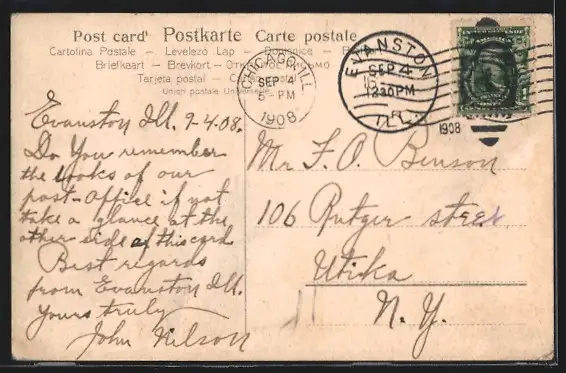 Post card Postkarte Carte postale
Cartolina Postale – Levelező Lap –
Briefkaart – Brevkort –
Tarjeta postal –
Union postale Universelle
CHICAGO, ILL.
SEP 4
5 - PM
1908
EVANSTON
SEP 4
12 30 PM
ILL.
R.
1908
Evanston Ill. 9-4.08.
Do You remember
the looks of our
post-office if not
take a glance at the
other side of this card
Best regards
from Evanston Ill.
Yours truly
John Nilson
Mr F. O. Benson
106 Rutger street
Utika
N. Y.